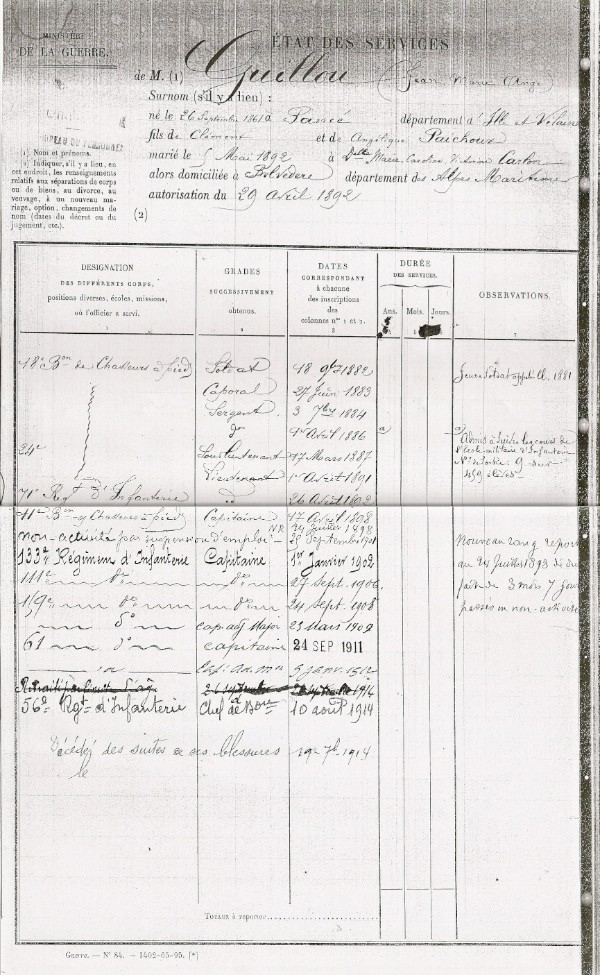 MINISTÈRE
DE LA GUERRE.
ÉTAT DES SERVICES
de M. (1) Guillou (Jean Marie Ange)
Surnom (s'il y a lieu) :
né le 26 Septembre 1861 à Pancé département d'Ille et Vilaine
fils de Clément et de Angélique Paichoux
marié le 5 Mai 1892 à Dlle Marie
alors domiciliée à Belvédère département des Alpes Maritimes
autorisation du 29 Avril 1892
(2)
(1) Nom et prénoms.
(2) Indiquer, s'il y a lieu, en
cet endroit, les renseignements
relatifs aux séparations de corps
ou de biens, au divorce, au
veuvage, à un nouveau ma-
riage, option, changements de
nom (dates du décret ou du
jugement, etc.).
DÉSIGNATION
DES DIFFÉRENTS CORPS,
positions diverses, écoles, missions,
où l'officier a servi.
1
GRADES
SUCCESSIVEMENT
obtenus.
2
DATES
CORRESPONDANT
à chacune
des inscriptions
des
colonnes nos 1 et 2.
3
DURÉE
DES SERVICES.
Ans. Mois. Jours.
OBSERVATIONS.
7
18e Bon de Chasseurs à pied Soldat 18 9bre 1882 Jeune Soldat appelé Cl. 1881
Caporal 27 Juin 1883
Sergent 3 7bre 1884
do 1er Avril 1886 a
a) Admis à suivre les cours de
l'école militaire d'Infanterie
24e Sous Lieutenant 17 Mars 1887
No de sortie : 9 sur
Lieutenant 1er Avril 1891
459 élèves
71e Regt d'Infanterie do 26 Avril
11e Bon de Chasseurs à pied Capitaine 17 Avril 1898
N.R. 24 Juillet 1898
non-activité par suspension d'emploi 28 Septembre 1901
133e Régiment d'Infanterie Capitaine 1er Janvier 1902
111e do do 27 Sept. 1906
159e do do 24 Sept. 1908
do cap adj Major 23 Mars 1909
61 do capitaine 24 SEP 1911
do Cap. Adj. Mor 5 janv. 1912
Nouveau rang reporté
au 24 Juillet 1893 déduction
faite de 3 mois 7 jours
passés en non-activité
1914
56e Rgt d'Infanterie Chef de Bon 10 août 1914
Décédé des suites de ses blessures 19 7b 1914
le
TOTAUX à reporter
Guerre. — No 84. — 1402-05-95. [*]